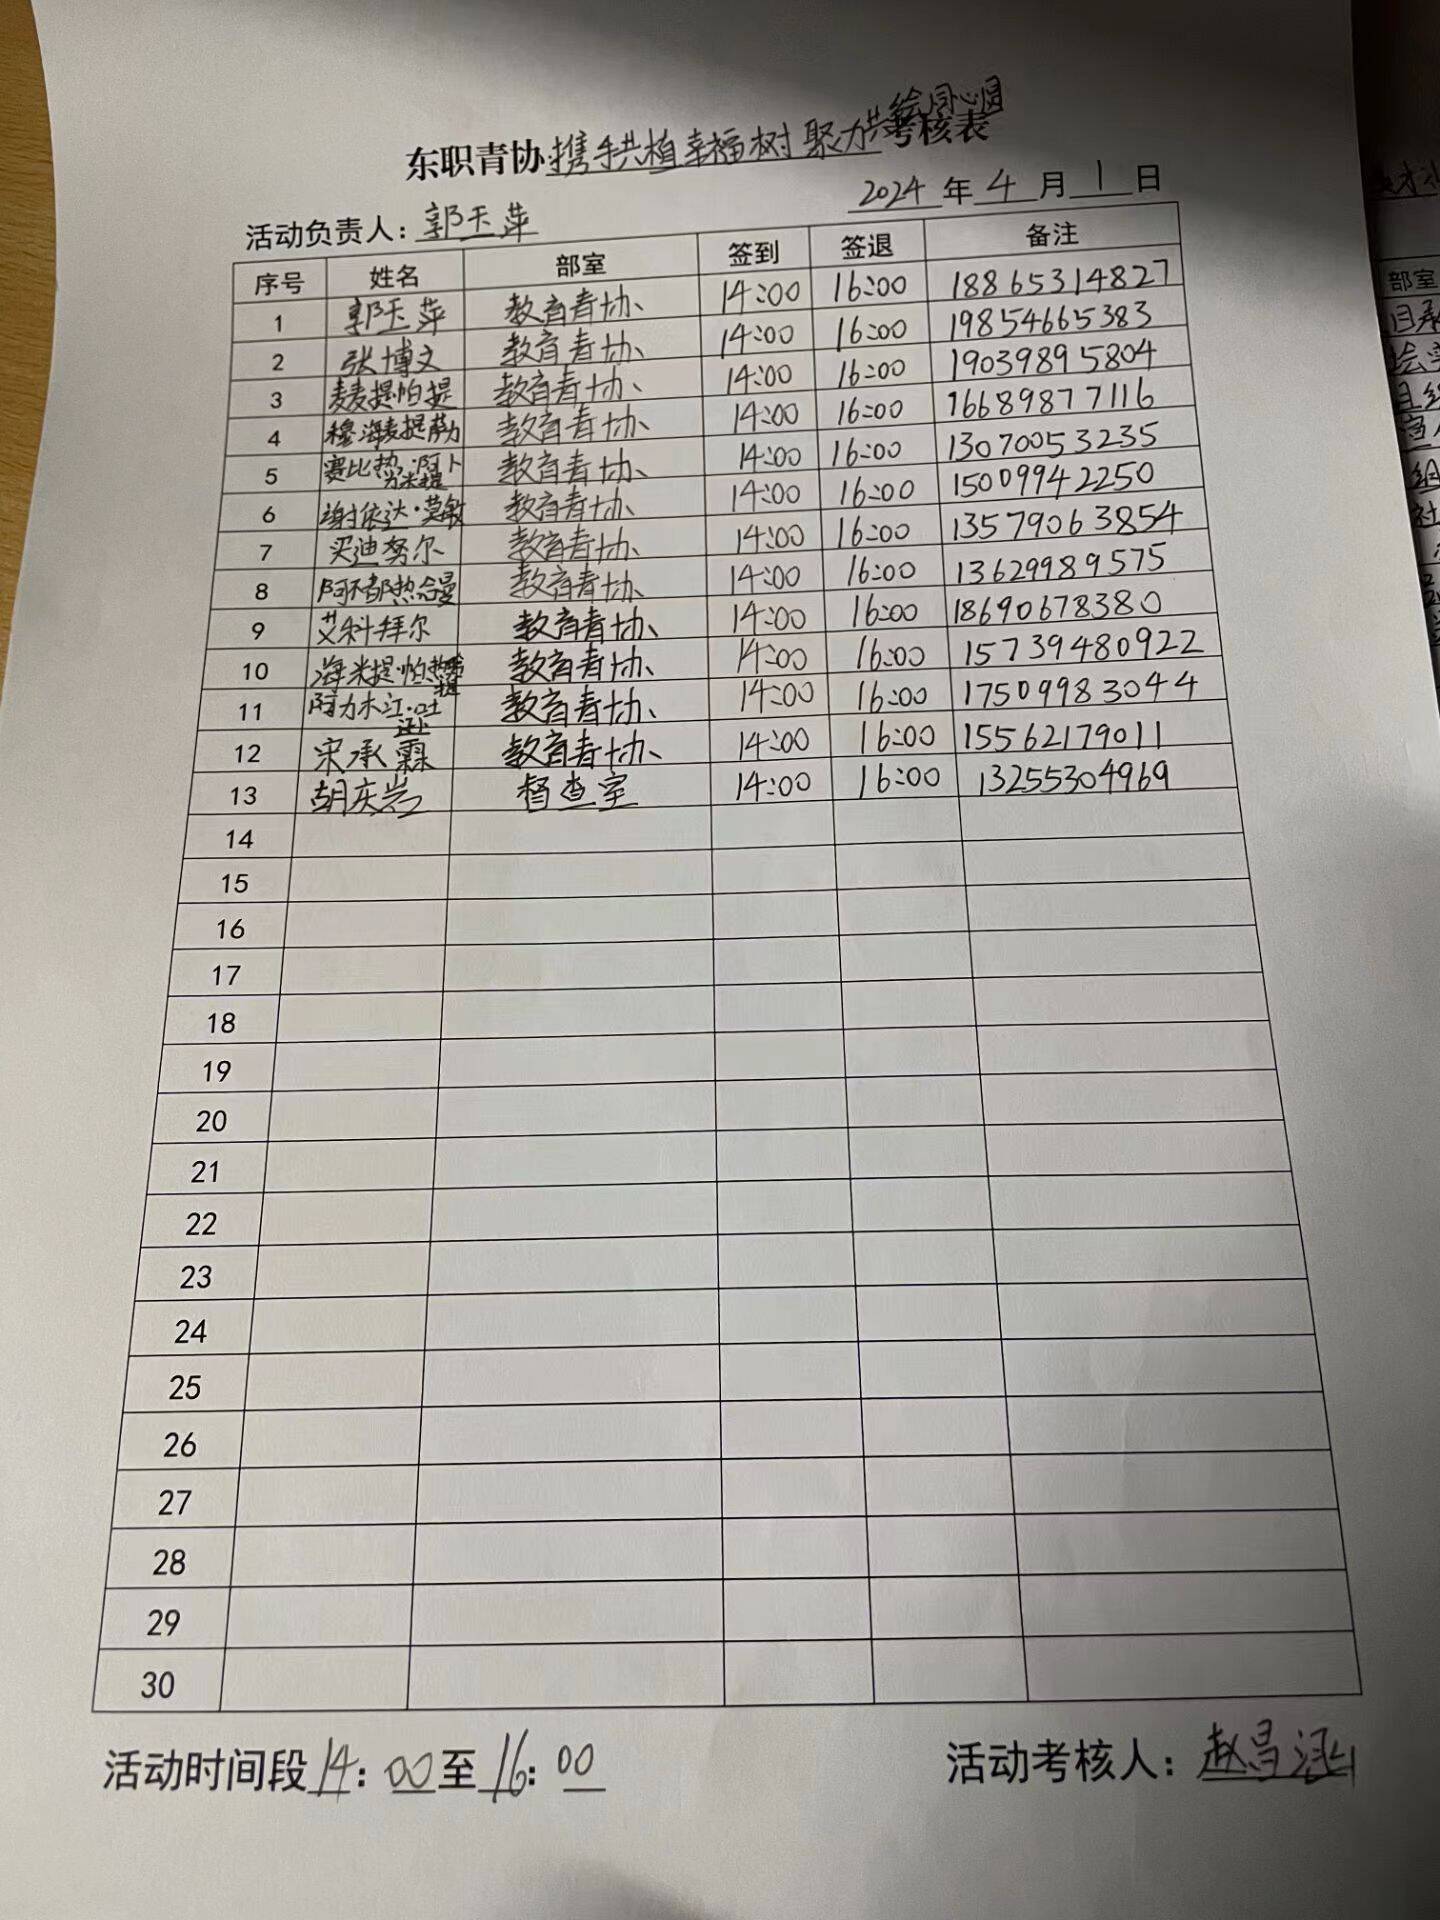 绘同心圆
东职青协携手共植幸福树 聚力共考核表
2024 年 4 月 1 日
活动负责人: 郭玉萍
序号 姓名 部室 签到 签退 备注
1 郭玉萍 教育青协 14:00 16:00 18865314827
2 张博文 教育青协 14:00 16:00 19854665383
3 麦麦提帕提 教育青协 14:00 16:00 19039895804
4 穆海麦提萨力 教育青协 14:00 16:00 16689877116
5 赛比热·阿卜力米提 教育青协 14:00 16:00 13070053235
6 谢依达·莫敏 教育青协 14:00 16:00 15009942250
7 买迪努尔 教育青协 14:00 16:00 13579063854
8 阿不都热合曼 教育青协 14:00 16:00 13629989575
9 艾科拜尔 教育青协 14:00 16:00 18690678380
10 海米提·帕热 教育青协 14:00 16:00 15739480922
11 阿力木江·吐 教育青协 14:00 16:00 17509983044
12 宋承霖 教育青协 14:00 16:00 15562179011
13 胡庆岩 督查室 14:00 16:00 13255304969
14
15
16
17
18
19
20
21
22
23
24
25
26
27
28
29
30
活动时间段 14: 00 至 16: 00 活动考核人: 赵昌涵
部室